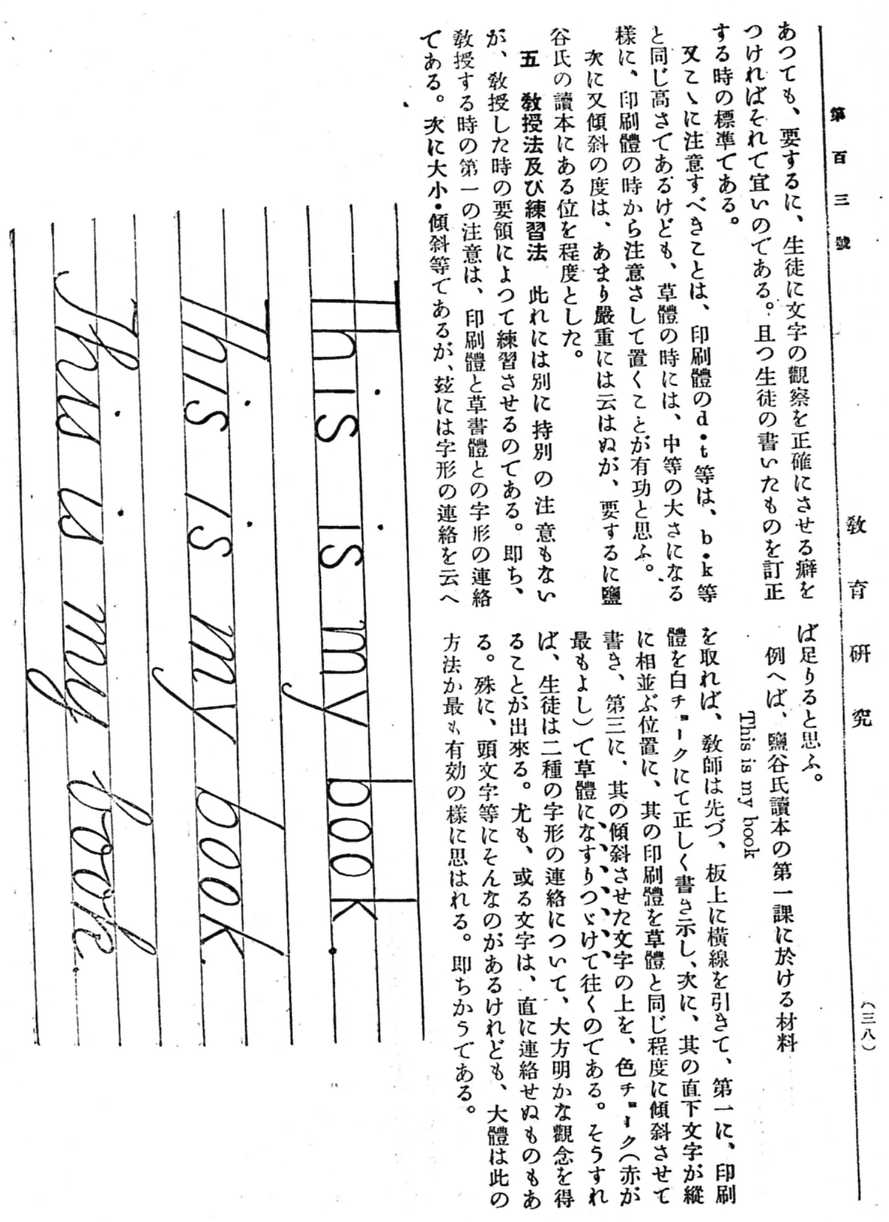 第百三號
敎育硏究
(三八)
あつても、要するに、生徒に文字の觀察を正確にさせる癖を
つければそれて宜いのである。且つ生徒の書いたものを訂正
する時の標準てある。
又こゝに注意すべきことは、印刷體のd・t等は、b・k等
と同じ高さであるけども、草體の時には、中等の大さになる
樣に、印刷體の時から注意さして置くことが有功と思ふ。
次に又傾斜の度は、あまり嚴重には云はぬが、要するに鹽
谷氏の讀本にある位を程度とした。
五 敎授法及び練習法 此れには別に持別の注意もない
が、敎授した時の要領によつて練習させるのである。即ち、
敎授する時の第一の注意は、印刷體と草書體との字形の連絡
てある。次に大小・傾斜等であるが、玆には字形の連絡を云へ
ば足りると思ふ。
例へば、鹽谷氏讀本の第一課に於ける材料
This is my book
を取れば、敎師は先づ、板上に橫線を引きて、第一に、印刷
體を白チョークにて正しく書き示し、次に、其の直下文字が縱
に相並ぶ位置に、其の印刷體を草體と同じ程度に傾斜させて
書き、第三に、其の傾斜させた文字の上を、色チョーク(赤が
最もよし)て草體になすりつゞけて往くのである。そうすれ
ば、生徒は二種の字形の連絡について、大方明かな觀念を得
ることが出來る。尤も、或る文字は、直に連絡せぬものもあ
る。殊に、頭文字等にそんなのがあるけれども、大體は此の
方法か最も有効の樣に思はれる。即ちかうてある。
This is my book.
This is my book.
This is my book.